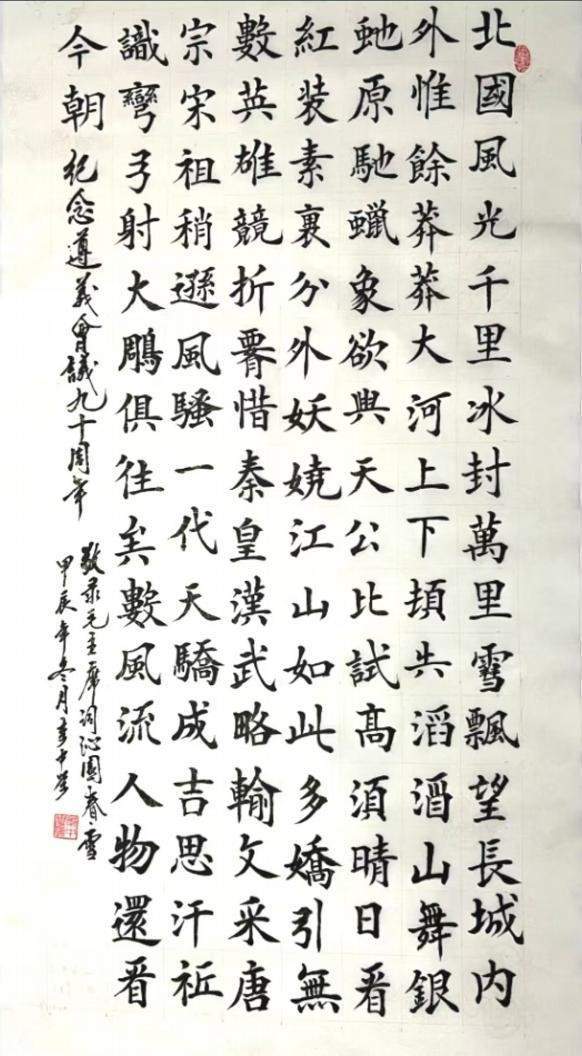 北國風光千里冰封萬里雪飄望長城内
外惟餘莽莽大河上下頓失滔滔山舞銀
虵原馳蠟象欲與天公比試高須晴日看
紅装素裹分外妖嬈江山如此多嬌引無
數英雄競折腰惜秦皇漢武略輸文采唐
宗宋祖稍遜風騷一代天驕成吉思汗衹
識彎弓射大鵰俱往矣數風流人物還看
今朝 紀念遵義會議九十周年
敬录毛主席词沁園春雪
甲辰年冬月李中